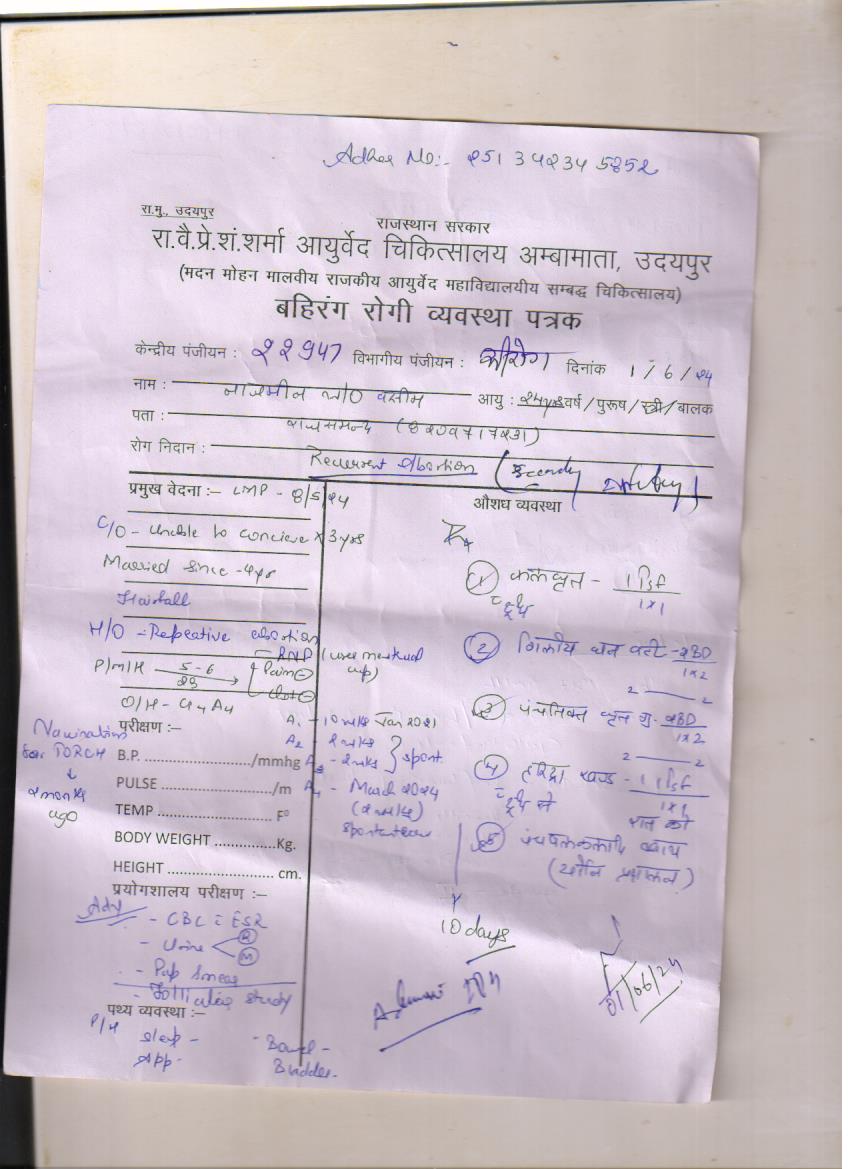 Adhar No:- 251 34234 5852
रा.मु., उदयपुर
राजस्थान सरकार
रा.वै.प्रे.शं.शर्मा आयुर्वेद चिकित्सालय अम्बामाता, उदयपुर
(मदन मोहन मालवीय राजकीय आयुर्वेद महाविद्यालयीय सम्बद्ध चिकित्सालय)
बहिरंग रोगी व्यवस्था पत्रक
केन्द्रीय पंजीयन : २२947 विभागीय पंजीयन : स्त्रीरोग दिनांक 1/6/24
नाम : W/O वसीम आयु : 24yrs वर्ष/पुरूष/स्त्री/बालक
पता : राजसमन्द
रोग निदान : Recurrent abortion (Secondary Infertility)
प्रमुख वेदना :– LMP - 8/5/24
C/O - Unable to concieve x 3 yrs
Married since - 4yr
Hairfall
H/O - Repeative abortion
P/M/H 5-6 Pain
(uses menstrual cup)
O/H - G4 A4
A1 - 10 wks Jan 2021
A2
A3 spont.
A4 - March 2024
Vaccination for TORCH
2 months ago
परीक्षण :–
B.P. /mmhg
PULSE /m
TEMP F°
BODY WEIGHT Kg.
HEIGHT cm.
प्रयोगशालय परीक्षण :–
Adv
- CBC ESR
- Urine R M
- Pap Smear
- Follicular study
पथ्य व्यवस्था :–
P/H Sleep - - Bowel -
App - Bladder -
औषध व्यवस्था
Rx
① फलघृत - 1 tsf
1x1
दूध
② गिलोय घन वटी - 2BD
1x2
③ पंचतिक्त घृत गु. 2BD
1x2
④ हरिद्रा खण्ड - 1 tsf
1x1
दूध से रात को
⑤ पंचवल्कलादि क्वाथ
(योनि प्रक्षालन)
x 10 days
01/06/24